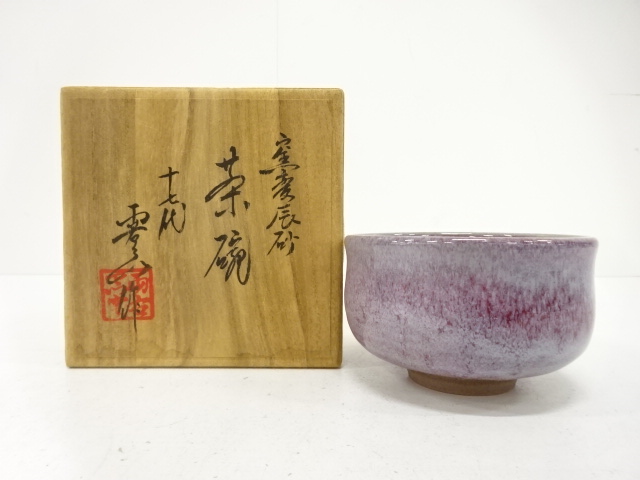 窯変辰砂
茶碗
十七代
雲山作